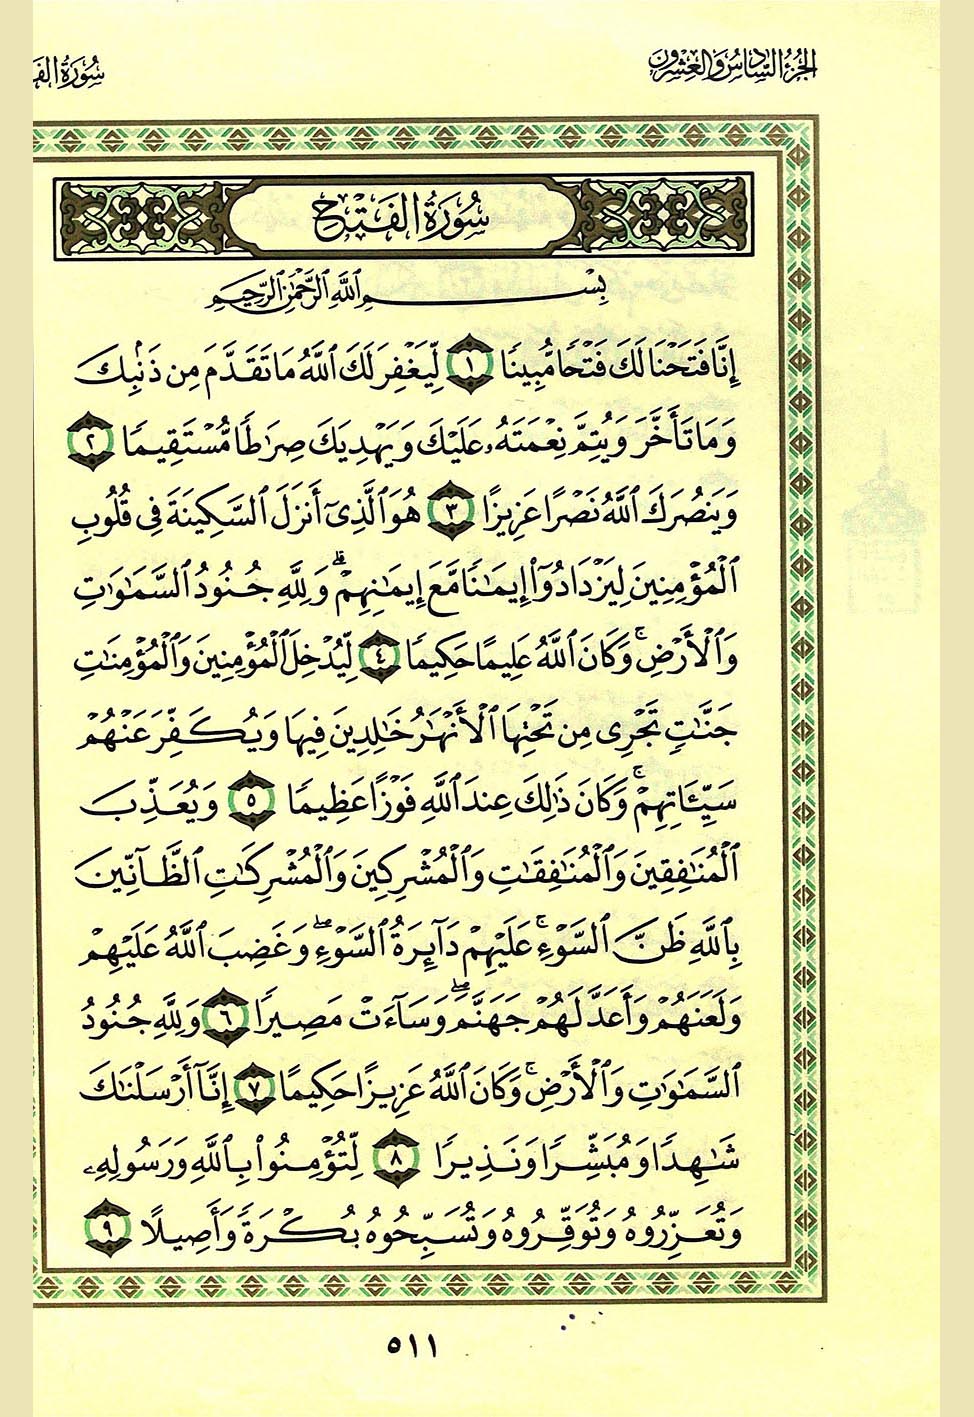 الجزء السادس والعشرون
سورة الف
سُورَةُ الفَتْحِ
بِسْمِ ٱللَّهِ ٱلرَّحْمَٰنِ ٱلرَّحِيمِ
إِنَّا فَتَحْنَا لَكَ فَتْحًا مُّبِينًا ١ لِّيَغْفِرَ لَكَ ٱللَّهُ مَا تَقَدَّمَ مِن ذَنۢبِكَ
وَمَا تَأَخَّرَ وَيُتِمَّ نِعْمَتَهُۥ عَلَيْكَ وَيَهْدِيَكَ صِرَٰطًا مُّسْتَقِيمًا ٢
وَيَنصُرَكَ ٱللَّهُ نَصْرًا عَزِيزًا ٣ هُوَ ٱلَّذِىٓ أَنزَلَ ٱلسَّكِينَةَ فِى قُلُوبِ
ٱلْمُؤْمِنِينَ لِيَزْدَادُوٓا۟ إِيمَٰنًا مَّعَ إِيمَٰنِهِمْ ۗ وَلِلَّهِ جُنُودُ ٱلسَّمَٰوَٰتِ
وَٱلْأَرْضِ ۚ وَكَانَ ٱللَّهُ عَلِيمًا حَكِيمًا ٤ لِّيُدْخِلَ ٱلْمُؤْمِنِينَ وَٱلْمُؤْمِنَٰتِ
جَنَّٰتٍ تَجْرِى مِن تَحْتِهَا ٱلْأَنْهَٰرُ خَٰلِدِينَ فِيهَا وَيُكَفِّرَ عَنْهُمْ
سَيِّـَٔاتِهِمْ ۚ وَكَانَ ذَٰلِكَ عِندَ ٱللَّهِ فَوْزًا عَظِيمًا ٥ وَيُعَذِّبَ
ٱلْمُنَٰفِقِينَ وَٱلْمُنَٰفِقَٰتِ وَٱلْمُشْرِكِينَ وَٱلْمُشْرِكَٰتِ ٱلظَّآنِّينَ
بِٱللَّهِ ظَنَّ ٱلسَّوْءِ ۚ عَلَيْهِمْ دَآئِرَةُ ٱلسَّوْءِ ۖ وَغَضِبَ ٱللَّهُ عَلَيْهِمْ
وَلَعَنَهُمْ وَأَعَدَّ لَهُمْ جَهَنَّمَ ۖ وَسَآءَتْ مَصِيرًا ٦ وَلِلَّهِ جُنُودُ
ٱلسَّمَٰوَٰتِ وَٱلْأَرْضِ ۚ وَكَانَ ٱللَّهُ عَزِيزًا حَكِيمًا ٧ إِنَّآ أَرْسَلْنَٰكَ
شَٰهِدًا وَمُبَشِّرًا وَنَذِيرًا ٨ لِّتُؤْمِنُوا۟ بِٱللَّهِ وَرَسُولِهِۦ
وَتُعَزِّرُوهُ وَتُوَقِّرُوهُ وَتُسَبِّحُوهُ بُكْرَةً وَأَصِيلًا ٩
٥١١